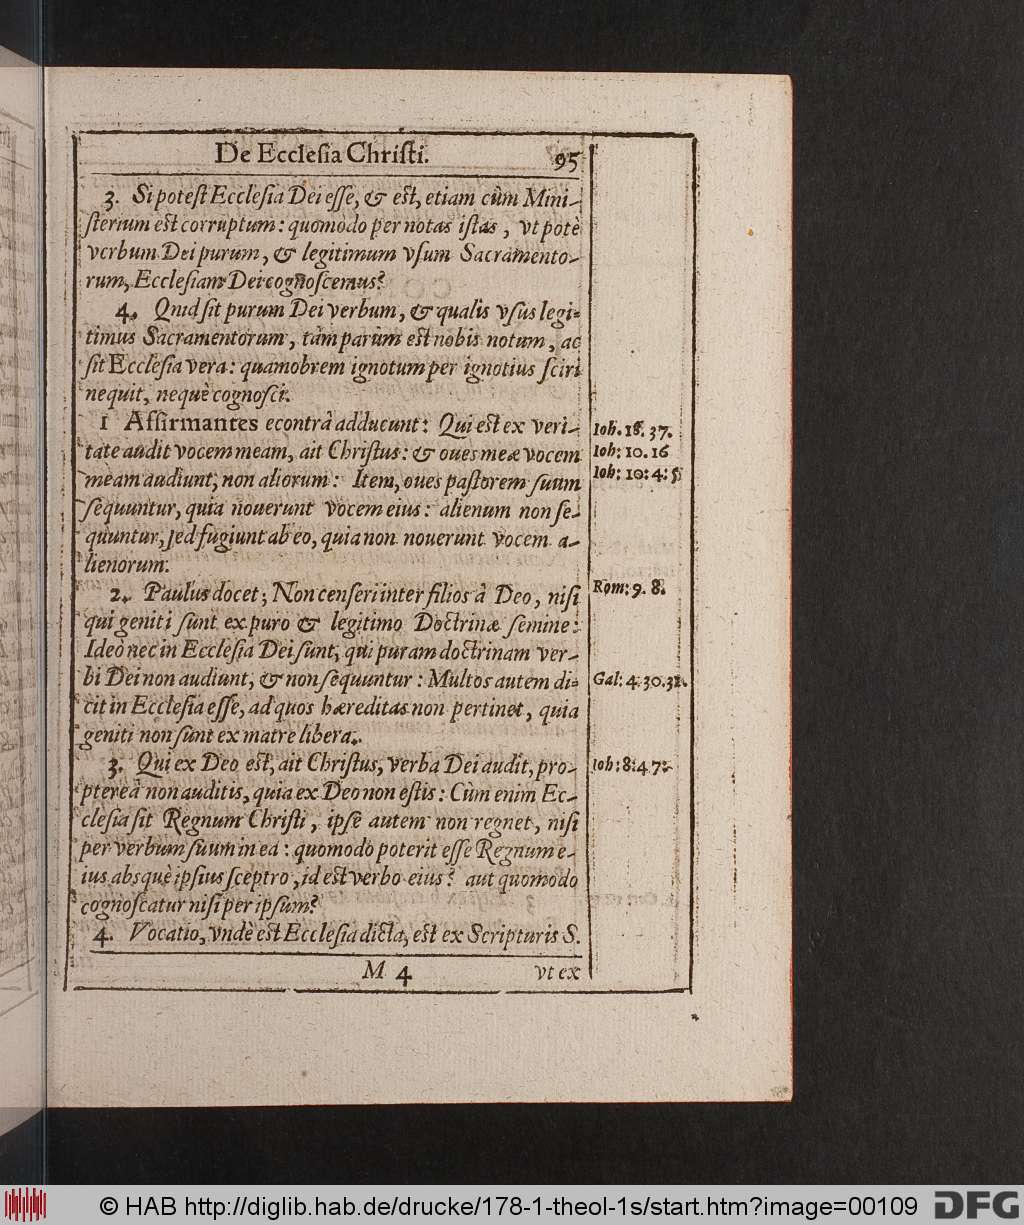 De Eccleſia Chriſti. 95
3. Si poteſt Eccleſia Dei eſſe, & eſt, etiam cùm Mini-
ſterium eſt corruptum: quomodo per notas iſtas, vt potè
verbum Dei purum, & legitimum vſum Sacramento-
rum, Eccleſiam Dei cognoſcemus?
4. Quid ſit purum Dei verbum, & qualis vſus legi-
timus Sacramentorum, tàm parùm eſt nobis notum, ac
ſit Eccleſia vera: quamobrem ignotum per ignotius ſciri
nequit, nequè cognoſci.
1 Affirmantes econtrà adducunt: Qui eſt ex veri-
tate audit vocem meam, ait Chriſtus: & oues meæ vocem
meam audiunt, non aliorum: Item, oues paſtorem ſuum
ſequuntur, quia nouerunt vocem eius: alienum non ſe-
quuntur, ſed fugiunt ab eo, quia non nouerunt vocem a-
lienorum.
2. Paulus docet; Non cenſeri inter filios à Deo, niſi
qui geniti ſunt ex puro & legitimo Doctrinæ ſemine:
Ideò nec in Eccleſia Dei ſunt, qui puram doctrinam ver-
bi Dei non audiunt, & non ſequuntur: Multos autem di-
cit in Eccleſia eſſe, ad quos hæreditas non pertinet, quia
geniti non ſunt ex matre libera.
3. Qui ex Deo eſt, ait Chriſtus, verba Dei audit, pro-
ptereà non auditis, quia ex Deo non eſtis: Cùm enim Ec-
cleſia ſit Regnum Chriſti, ipſe autem non regnet, niſi
per verbum ſuum in ea: quomodò poterit eſſe Regnum e-
ius absquè ipſius ſceptro, id eſt verbo eius? aut quomodo
cognoſcatur niſi per ipſum?
4. Vocatio, vndè eſt Eccleſia dicta, eſt ex Scripturis S.
M 4 vt ex
Ioh. 18. 37.
Ioh: 10. 16
Ioh: 10: 4: 5
Rom: 9. 8.
Gal: 4. 30. 31.
Ioh: 8: 47.
© HAB http://diglib.hab.de/drucke/178-1-theol-1s/start.htm?image=00109
DFG